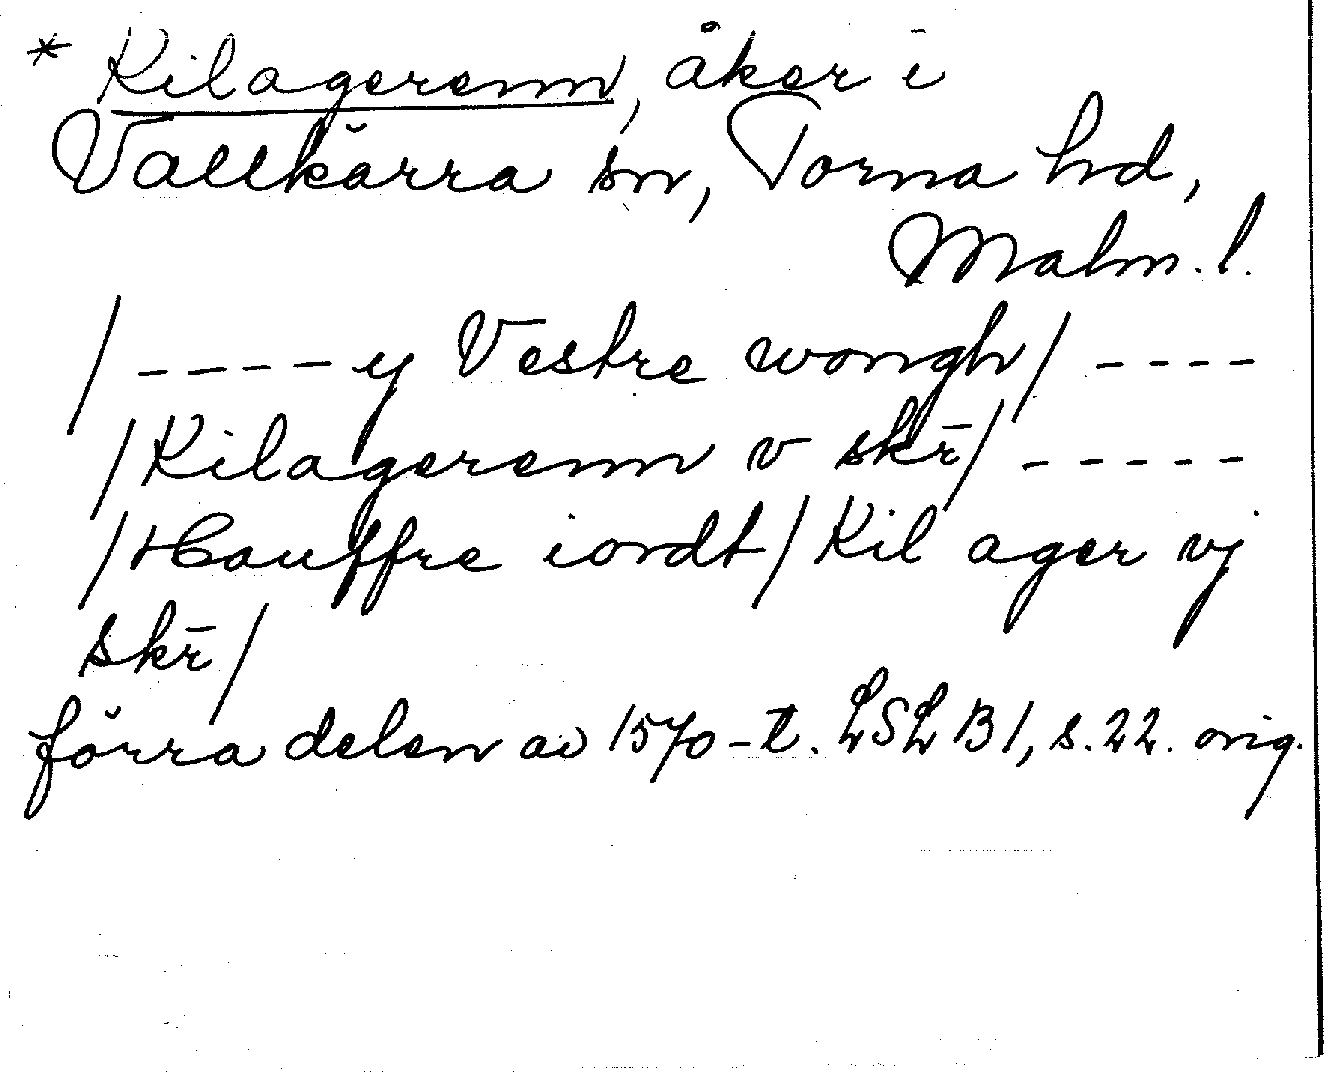 * Kilagerenn, åker i
Vallkärra sn, Torna hd,
Malm. l.
/ - - - - y Vestre wongh / - - - -
/ Kilagerenn v skr̄ / - - - - -
/ Hauffre iordt / Kil ager vj
skr̄ /
förra delen av 1570-t. LSL B1, s. 22. orig.